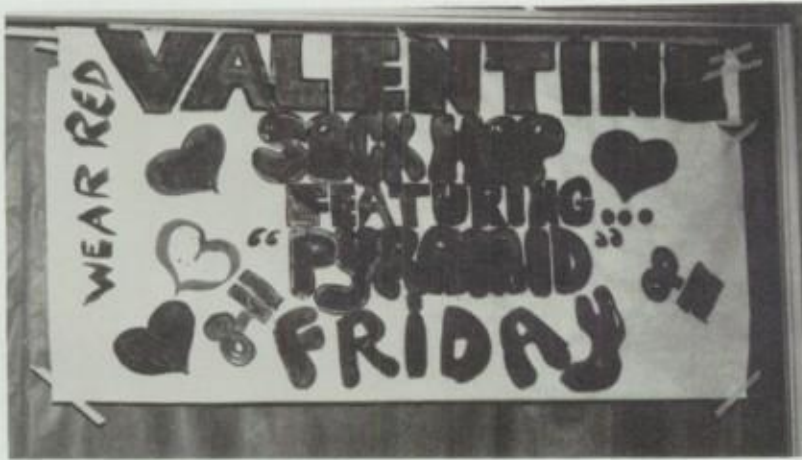 WEAR RED
VALENTINE
SOCK HOP
FEATURING...
"PYRAMID"
FRIDAY